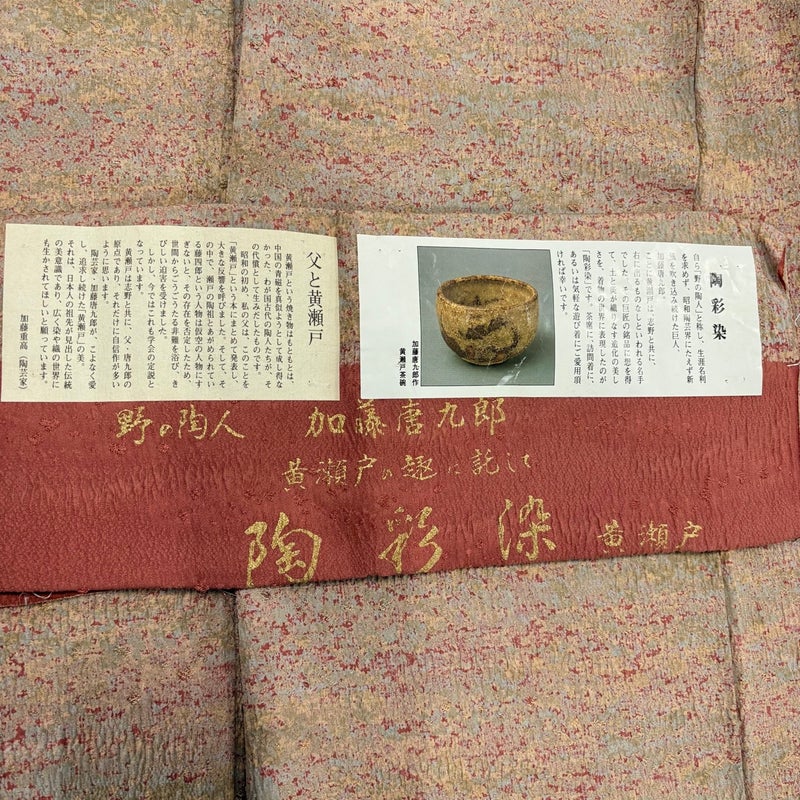 陶彩染
自ら「野の陶人」と称し、生涯名利
を求めず、昭和陶芸界にたえず新
風を吹き込み続けた巨人、
加藤唐九郎。
ことに黄瀬戸は、志野と共に、
右に出るものなしといわれる名手
でした。その巨匠の銘品に想を得
て、土と炎が織りなす造化の美し
さを、着物の世界に表現したのが
「陶彩染」です。茶席に、訪問着に、
あるいは気軽な遊び着にご愛用頂
ければ幸いです。
加藤唐九郎作
黄瀬戸茶碗
父と黄瀬戸
黄瀬戸という焼き物はもともとは、
中国の青磁を真似ようとして成し得な
かった、わが国古代の陶人たちが、そ
の代償として生みだしたものです。
昭和の初め、私の父は、このことを
「黄瀬戸」という本にまとめて発表し、
大きな反響を呼びました。そして、そ
の中で、瀬戸の陶祖とあがめられてい
る藤四郎という人物は仮空の人物にす
ぎないと、その存在を否定したため、
世間からごうごうたる非難を浴び、き
びしい迫害を受けました。
しかし、今ではこれも学会の定説と
なっています。
黄瀬戸は志野と共に、父・唐九郎の
原点であり、それだけに自信作が多い
ように思います。
陶芸家・加藤唐九郎が、こよなく愛
し、追求し続けた「黄瀬戸」の美。
それは、日本人の祖先が見出した伝統
の美意識であり、広く染や織の世界に
も生かされてほしいと願っています。
加藤重高（陶芸家）
野の陶人 加藤唐九郎
黄瀬戸の趣に託して
陶彩染 黄瀬戸